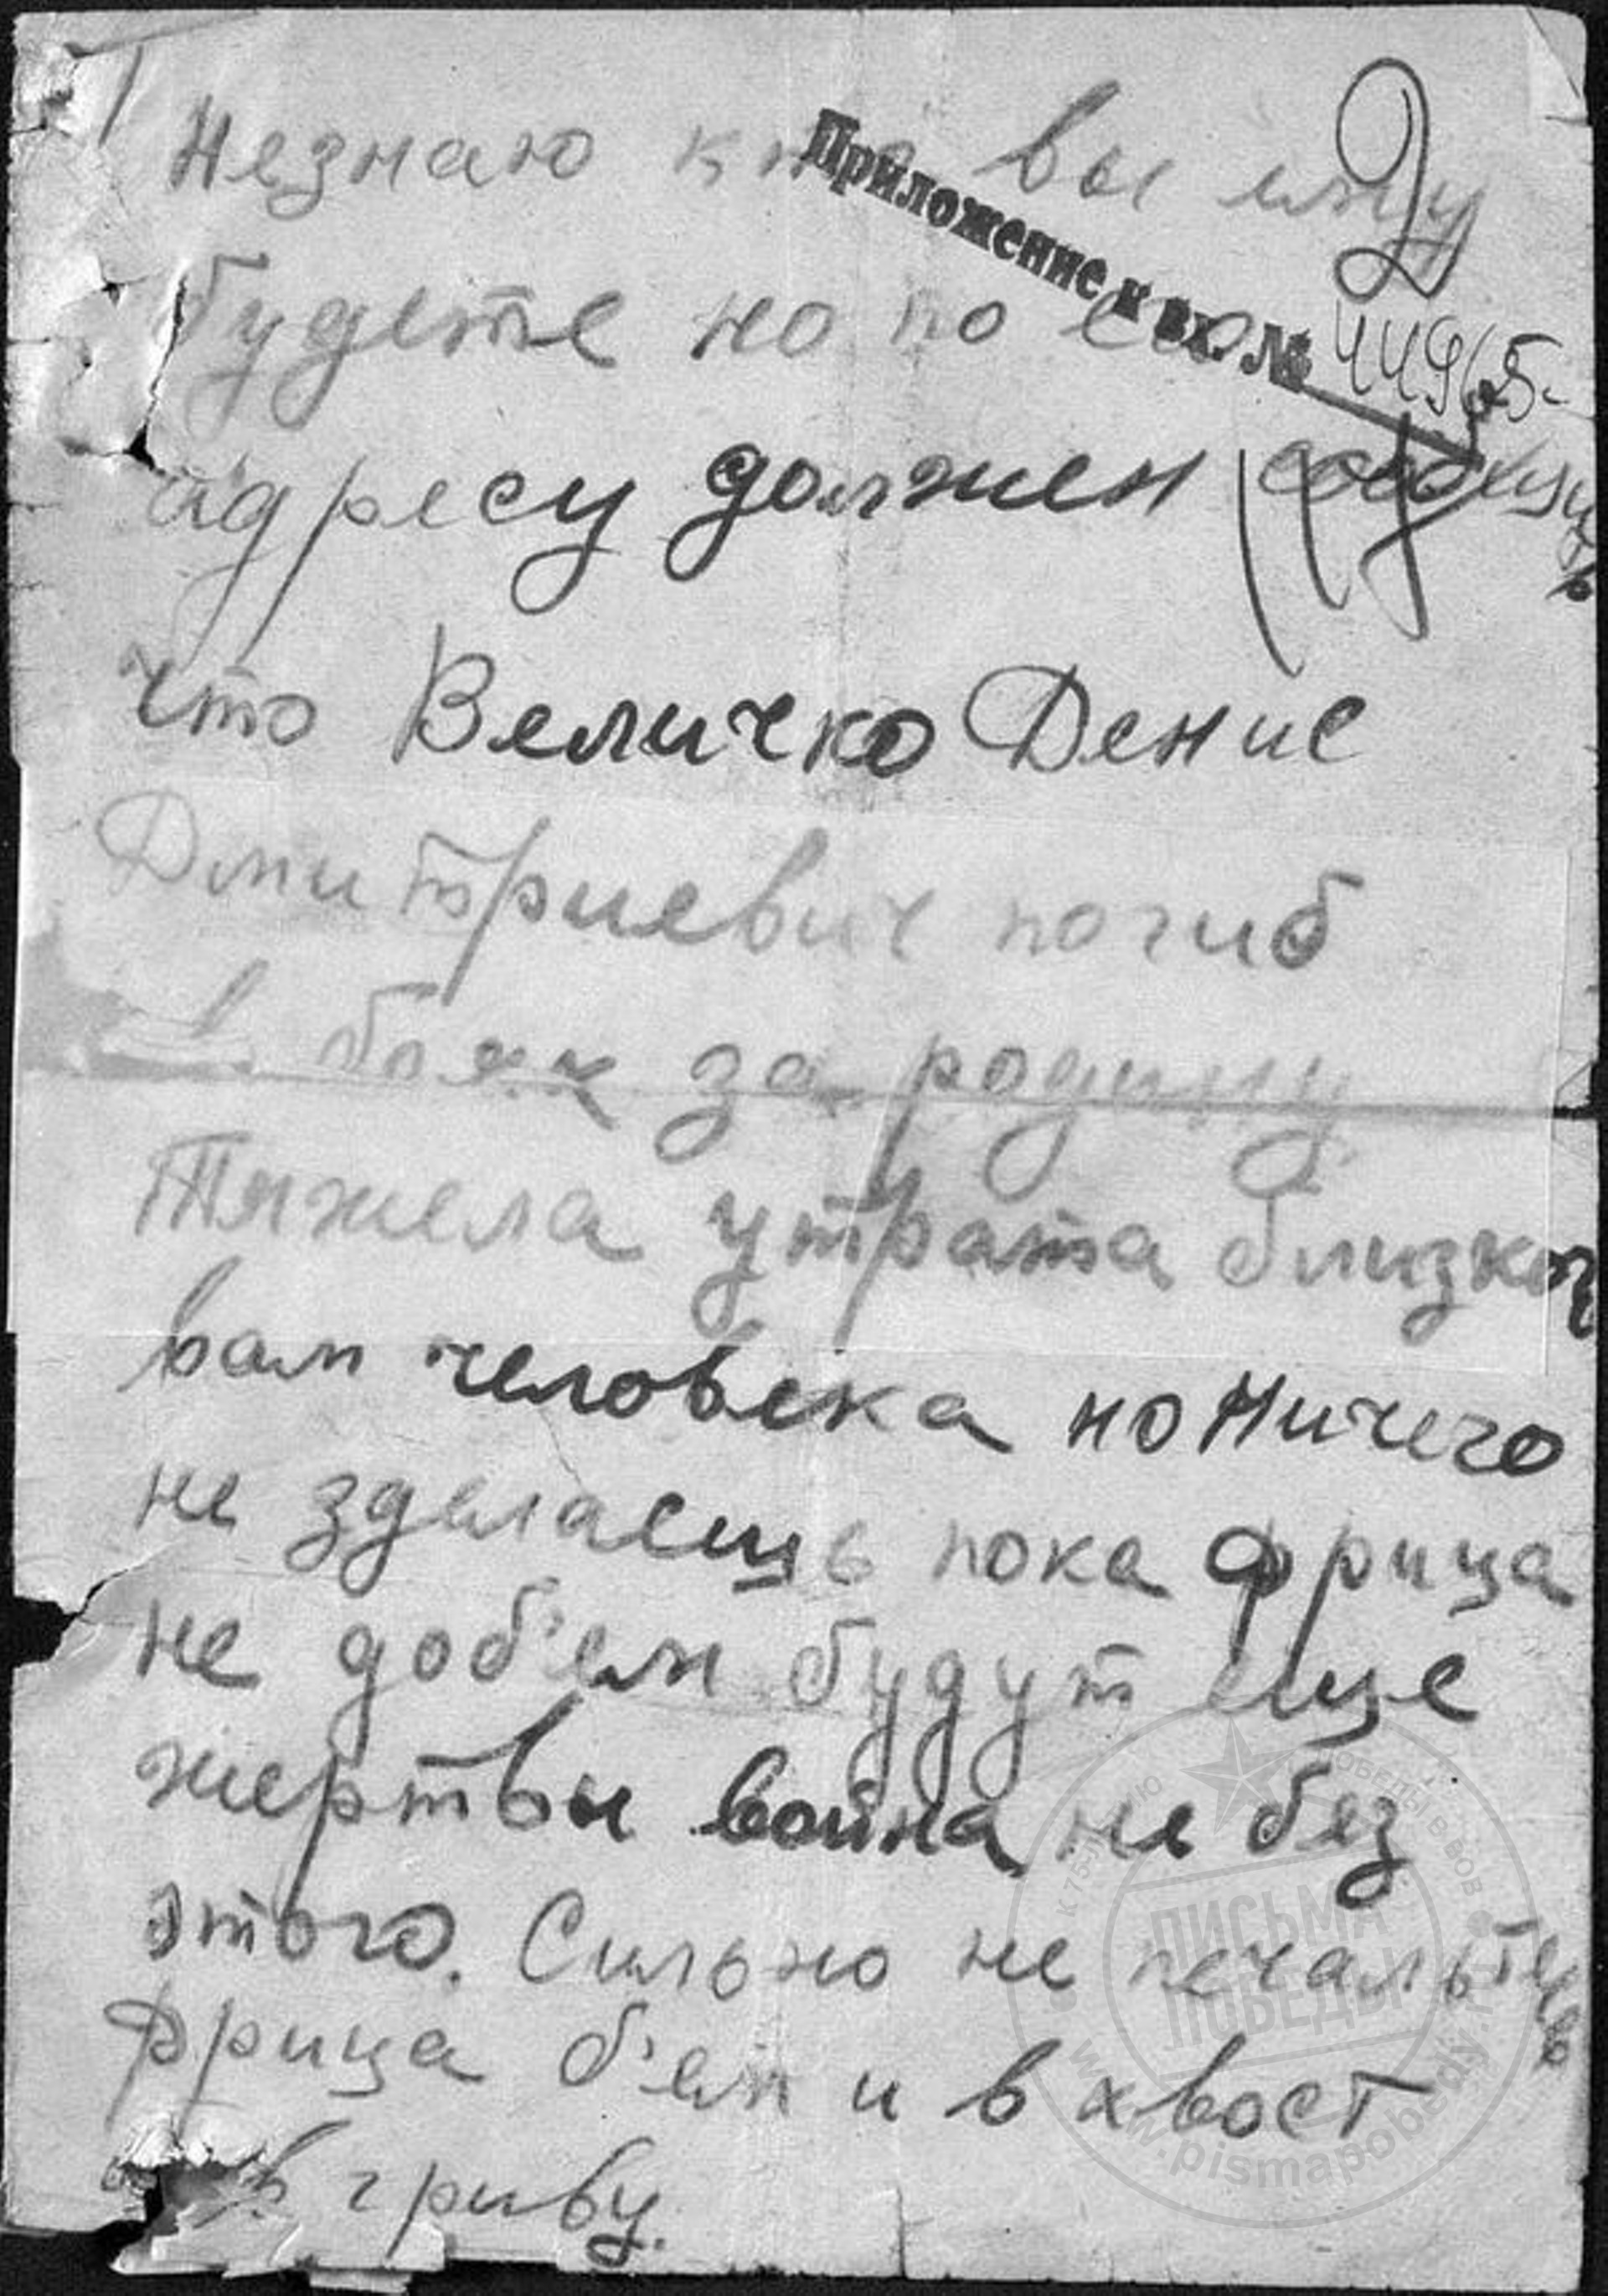 Незнаю кто вы ему
2
будете но по его
Приложение к вх. №
44965
адресу должен сообщить
что Величко Денис
Дмитриевич погиб
в боях за родину
Тяжела утрата близког
вам человека но ничего
не зделаешь пока фрица
не доб'ем будут еще
жертвы война не без
этого. Сильно не печальтесь
Фрица б'ем и в хвост
и в гриву.
ПИСЬМА
ПОБЕДЫ
www.pismapobedy.ru